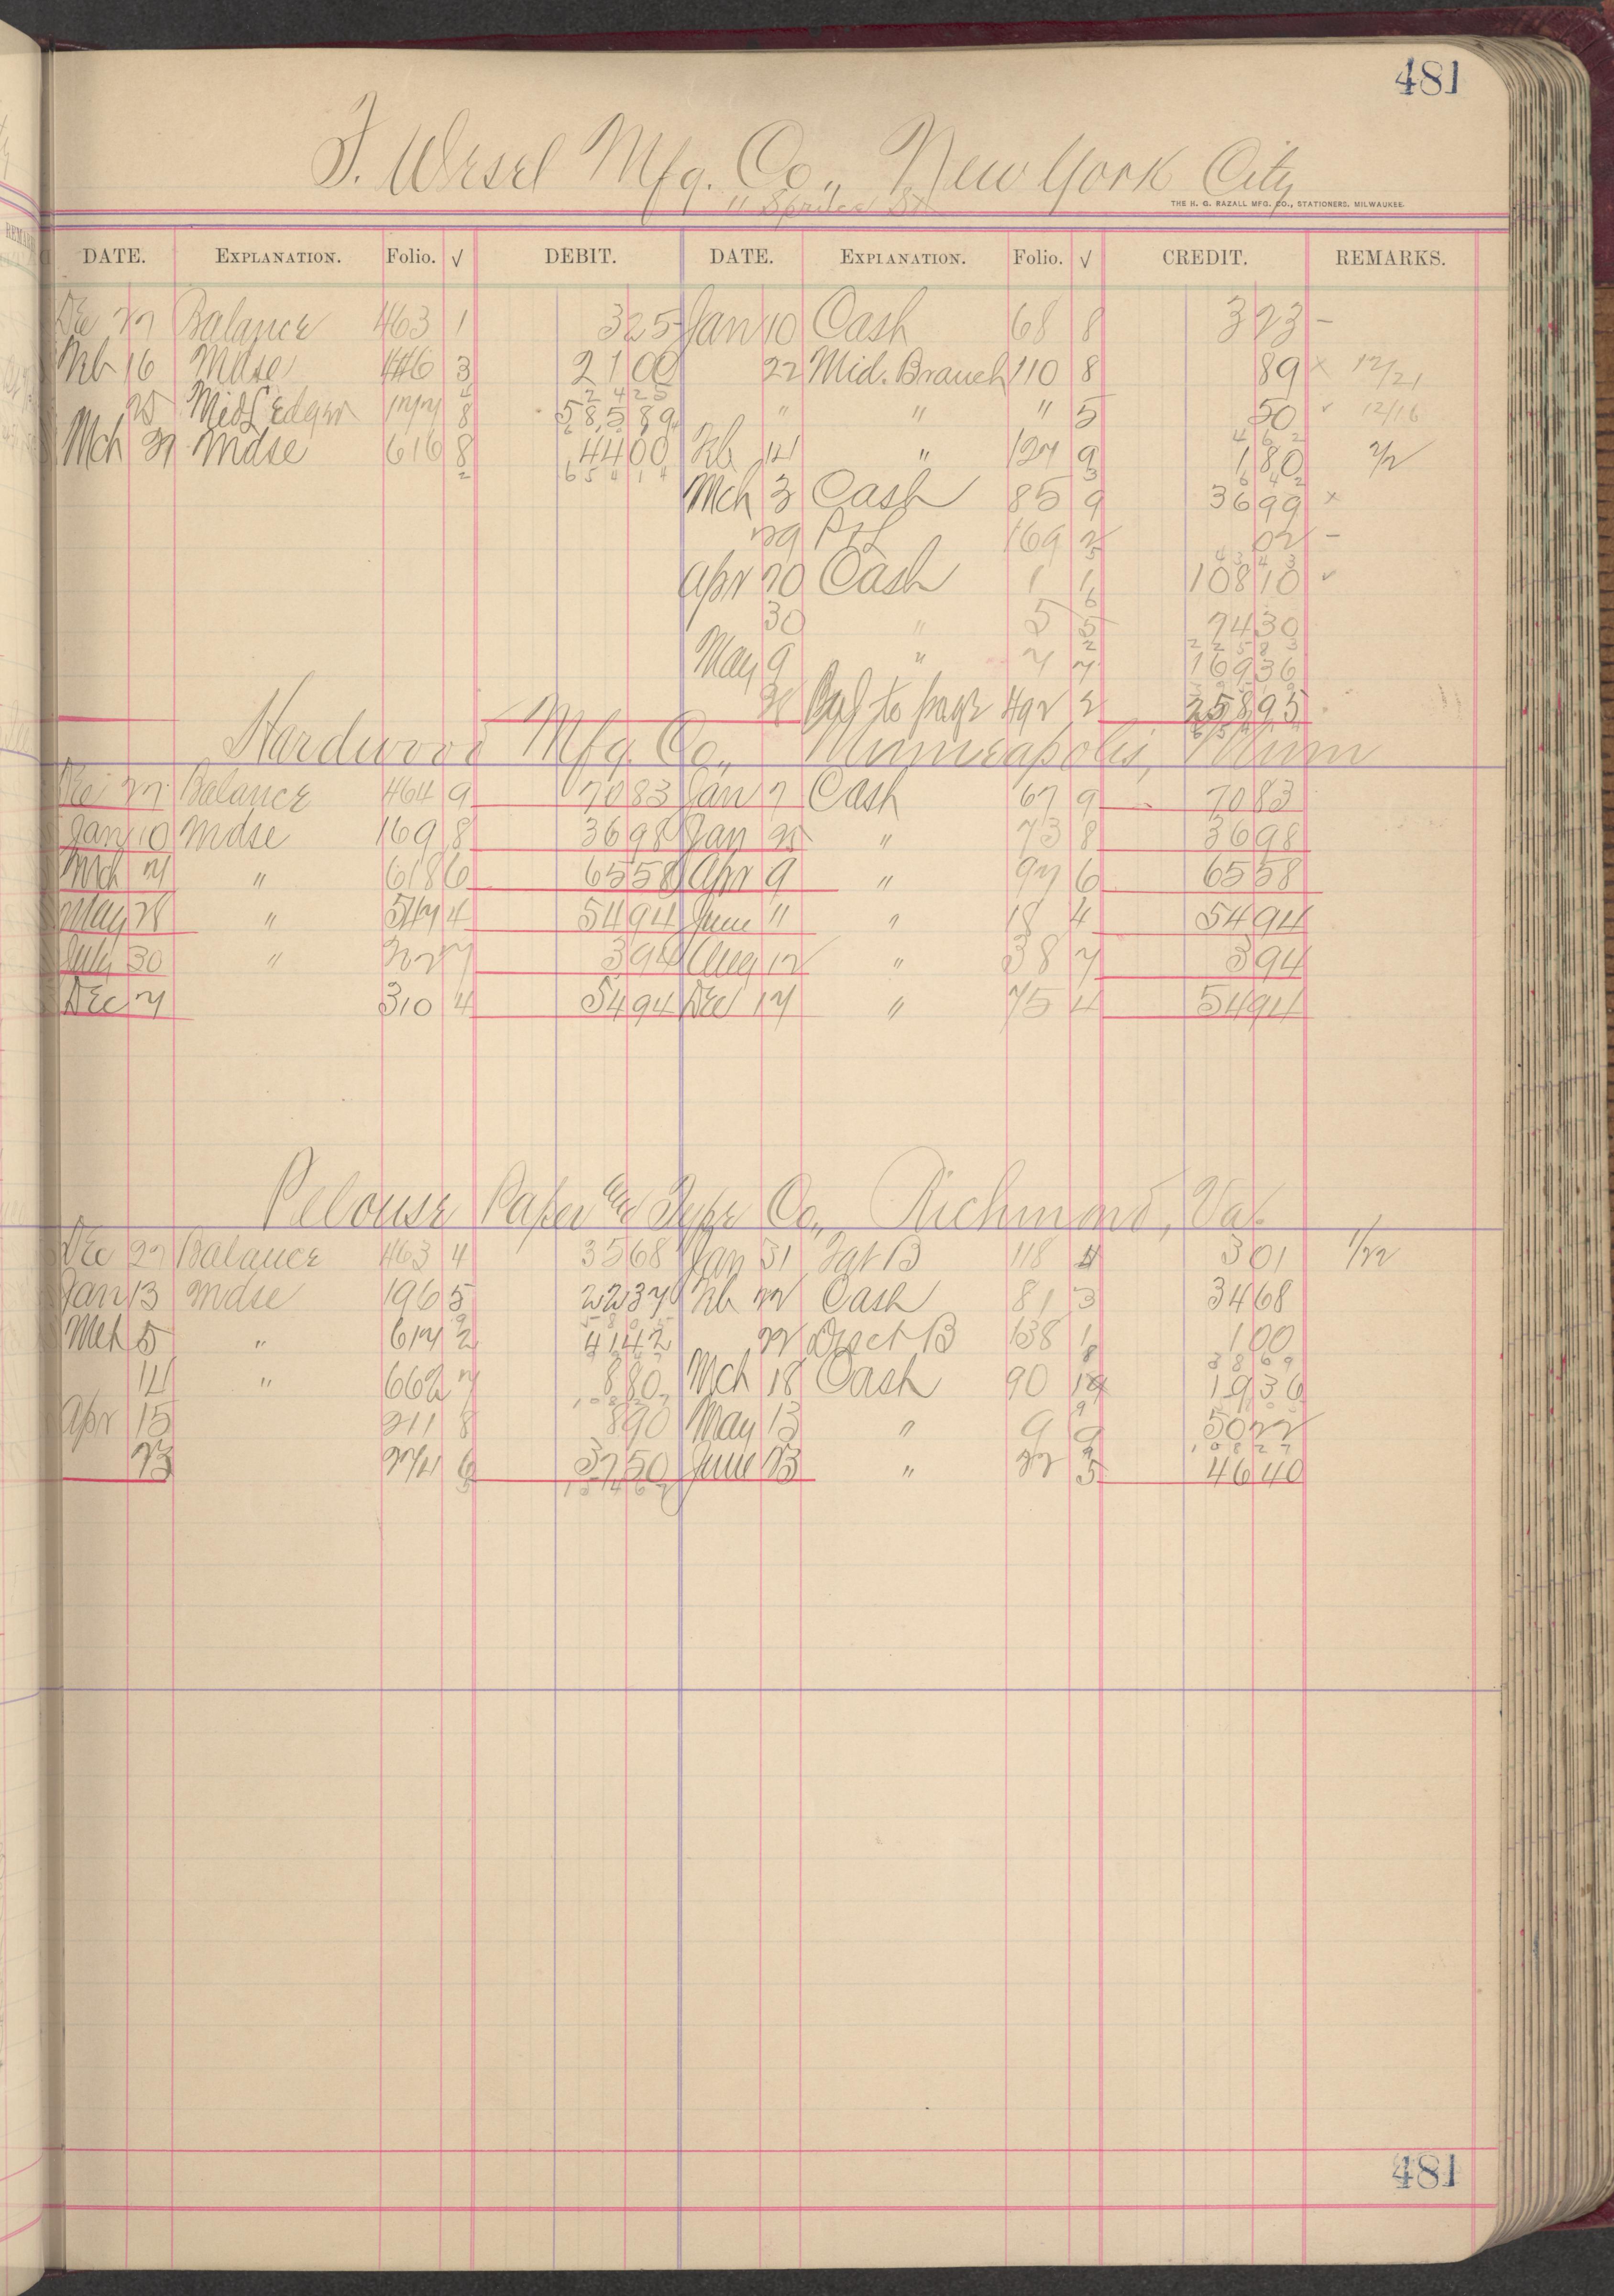 481
F. Wesel Mfg. Co., New York City
THE H. G. RAZALL MFG. CO., STATIONERS, MILWAUKEE.
DATE. EXPLANATION. Folio. √ DEBIT. DATE. EXPLANATION. Folio. √ CREDIT. REMARKS.
Dec 27 Balance 463 1 325 Jan 10 Cash 68 8 323 -
Feb 16 Mdse 446 3 2100 22 Mid. Branch 110 8 89 x 12/21
2425
25 177 8 58589 " " " 5 50 ✓ 12/16
462
Mch 27 Mdse 616 8 4400 Feb 14 " 127 9 180 2/2
65414 642
Mch 3 Cash 85 9 3699 x
29 P&L 169 2 02 -
4343
Apr 20 Cash 1 1 10810 ✓
30 " 5 5 7430
22583
May 9 " 7 7 16936
Bal to page 492 2 25893
Hardwood Mfg. Co., Minneapolis, Minn
Dec 27 Balance 464 9 7083 Jan 7 Cash 67 9 7083
Jan 10 Mdse 169 8 3698 Jan 25 " 73 8 3698
Mch 7 " 618 6 6558 Apr 9 " 97 6 6558
May 28 " 547 4 5494 June 11 " 18 4 5494
July 30 " 227 7 394 Aug 12 " 38 7 394
Dec 7 310 4 5494 Dec 17 " 75 4 5494
Pelouse Paper & Type Co., Richmond, Va.
Dec 27 Balance 463 4 3568 Jan 31 118 4 301 1/22
Jan 13 Mdse 196 5 2237 Feb 22 Cash 81 3 3468
Mch 5 " 617 2 4142 22 Disct B 138 1 100
3869
14 " 662 7 880 Mch 18 Cash 90 19 1936
Apr 15 211 8 890 May 13 " 9 9 5022
10827
23 274 6 3750 June 23 " 22 5 4640
15467
481